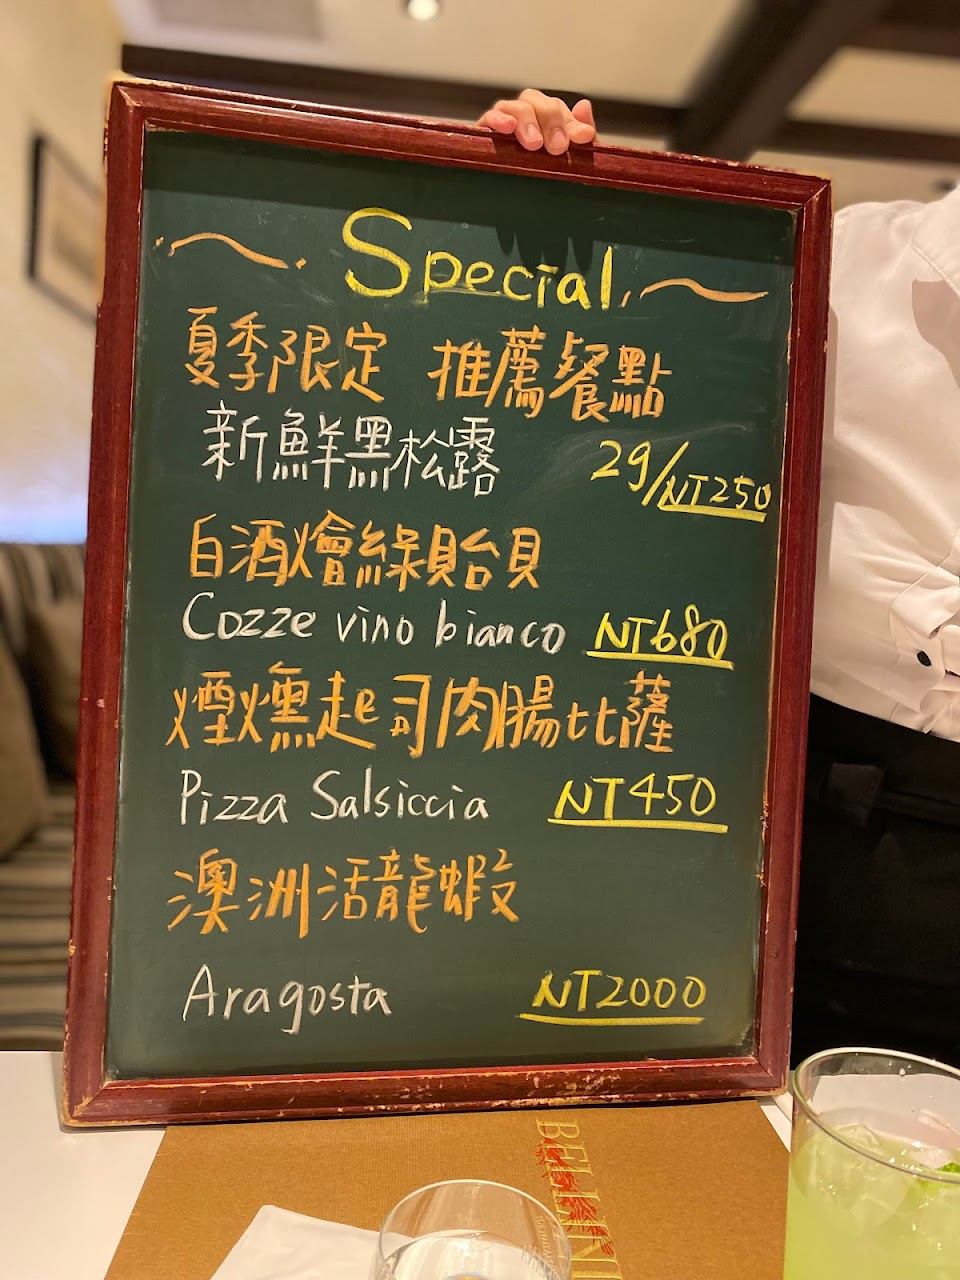 Special
夏季限定 推薦餐點
新鮮黑松露 2g/NT250
白酒燴綠貽貝
Cozze vino bianco NT680
煙燻起司肉腸比薩
Pizza Salsiccia NT450
澳洲活龍蝦
Aragosta NT2000
BELLINI